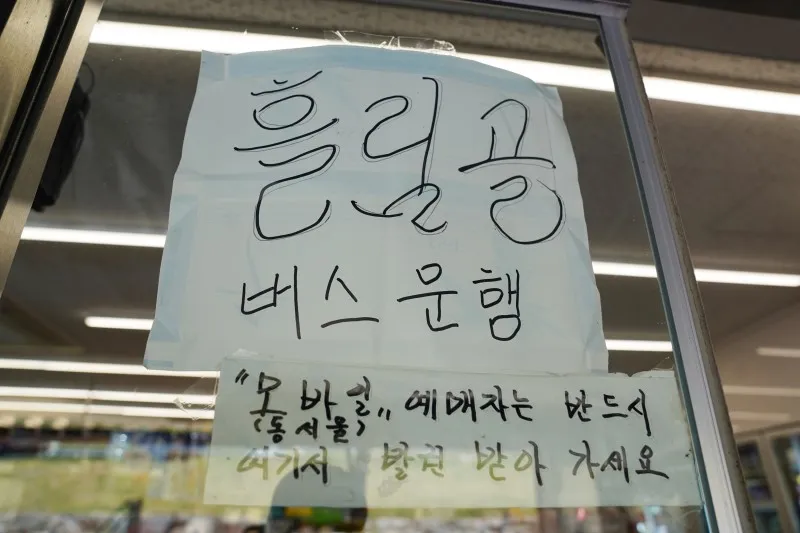 흘림골
버스 운행
"모바일" 예매자는 반드시
(동서울)
여기서 발권 받아 가세요